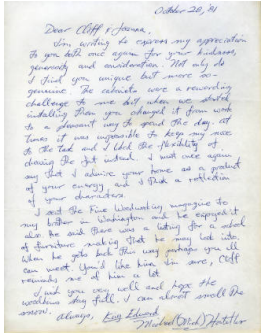 October 20, '81
Dear Cliff & Joanna,
I'm writing to express my appreciation
to you both once again for your kindness,
generosity and consideration. Not only do
I find you unique but more so -
genuine. The cabinets were a rewarding
challenge to me but when we started
installing them you changed it from work
to a pleasant way to spend the day. at
times it was impossible to keep my nose
to the task and I liked the flexibility of
chasing the fat instead. I must once again
say that I admire your home as a product
of your energy, and such a reflection
of your characters.
I sent the Fine Woodworking magazine to
my brother in Washington and he enjoyed it
also he said there was a listing for a school
of furniture making that he may look into
when he gets back this way perhaps you all
can meet. You'd like him I'm sure, Cliff
reminds me of him a lot.
I wish you very well and hope the
weather stay full. I can almost smell the
snow.
always, King Edward
Michael (Mick)